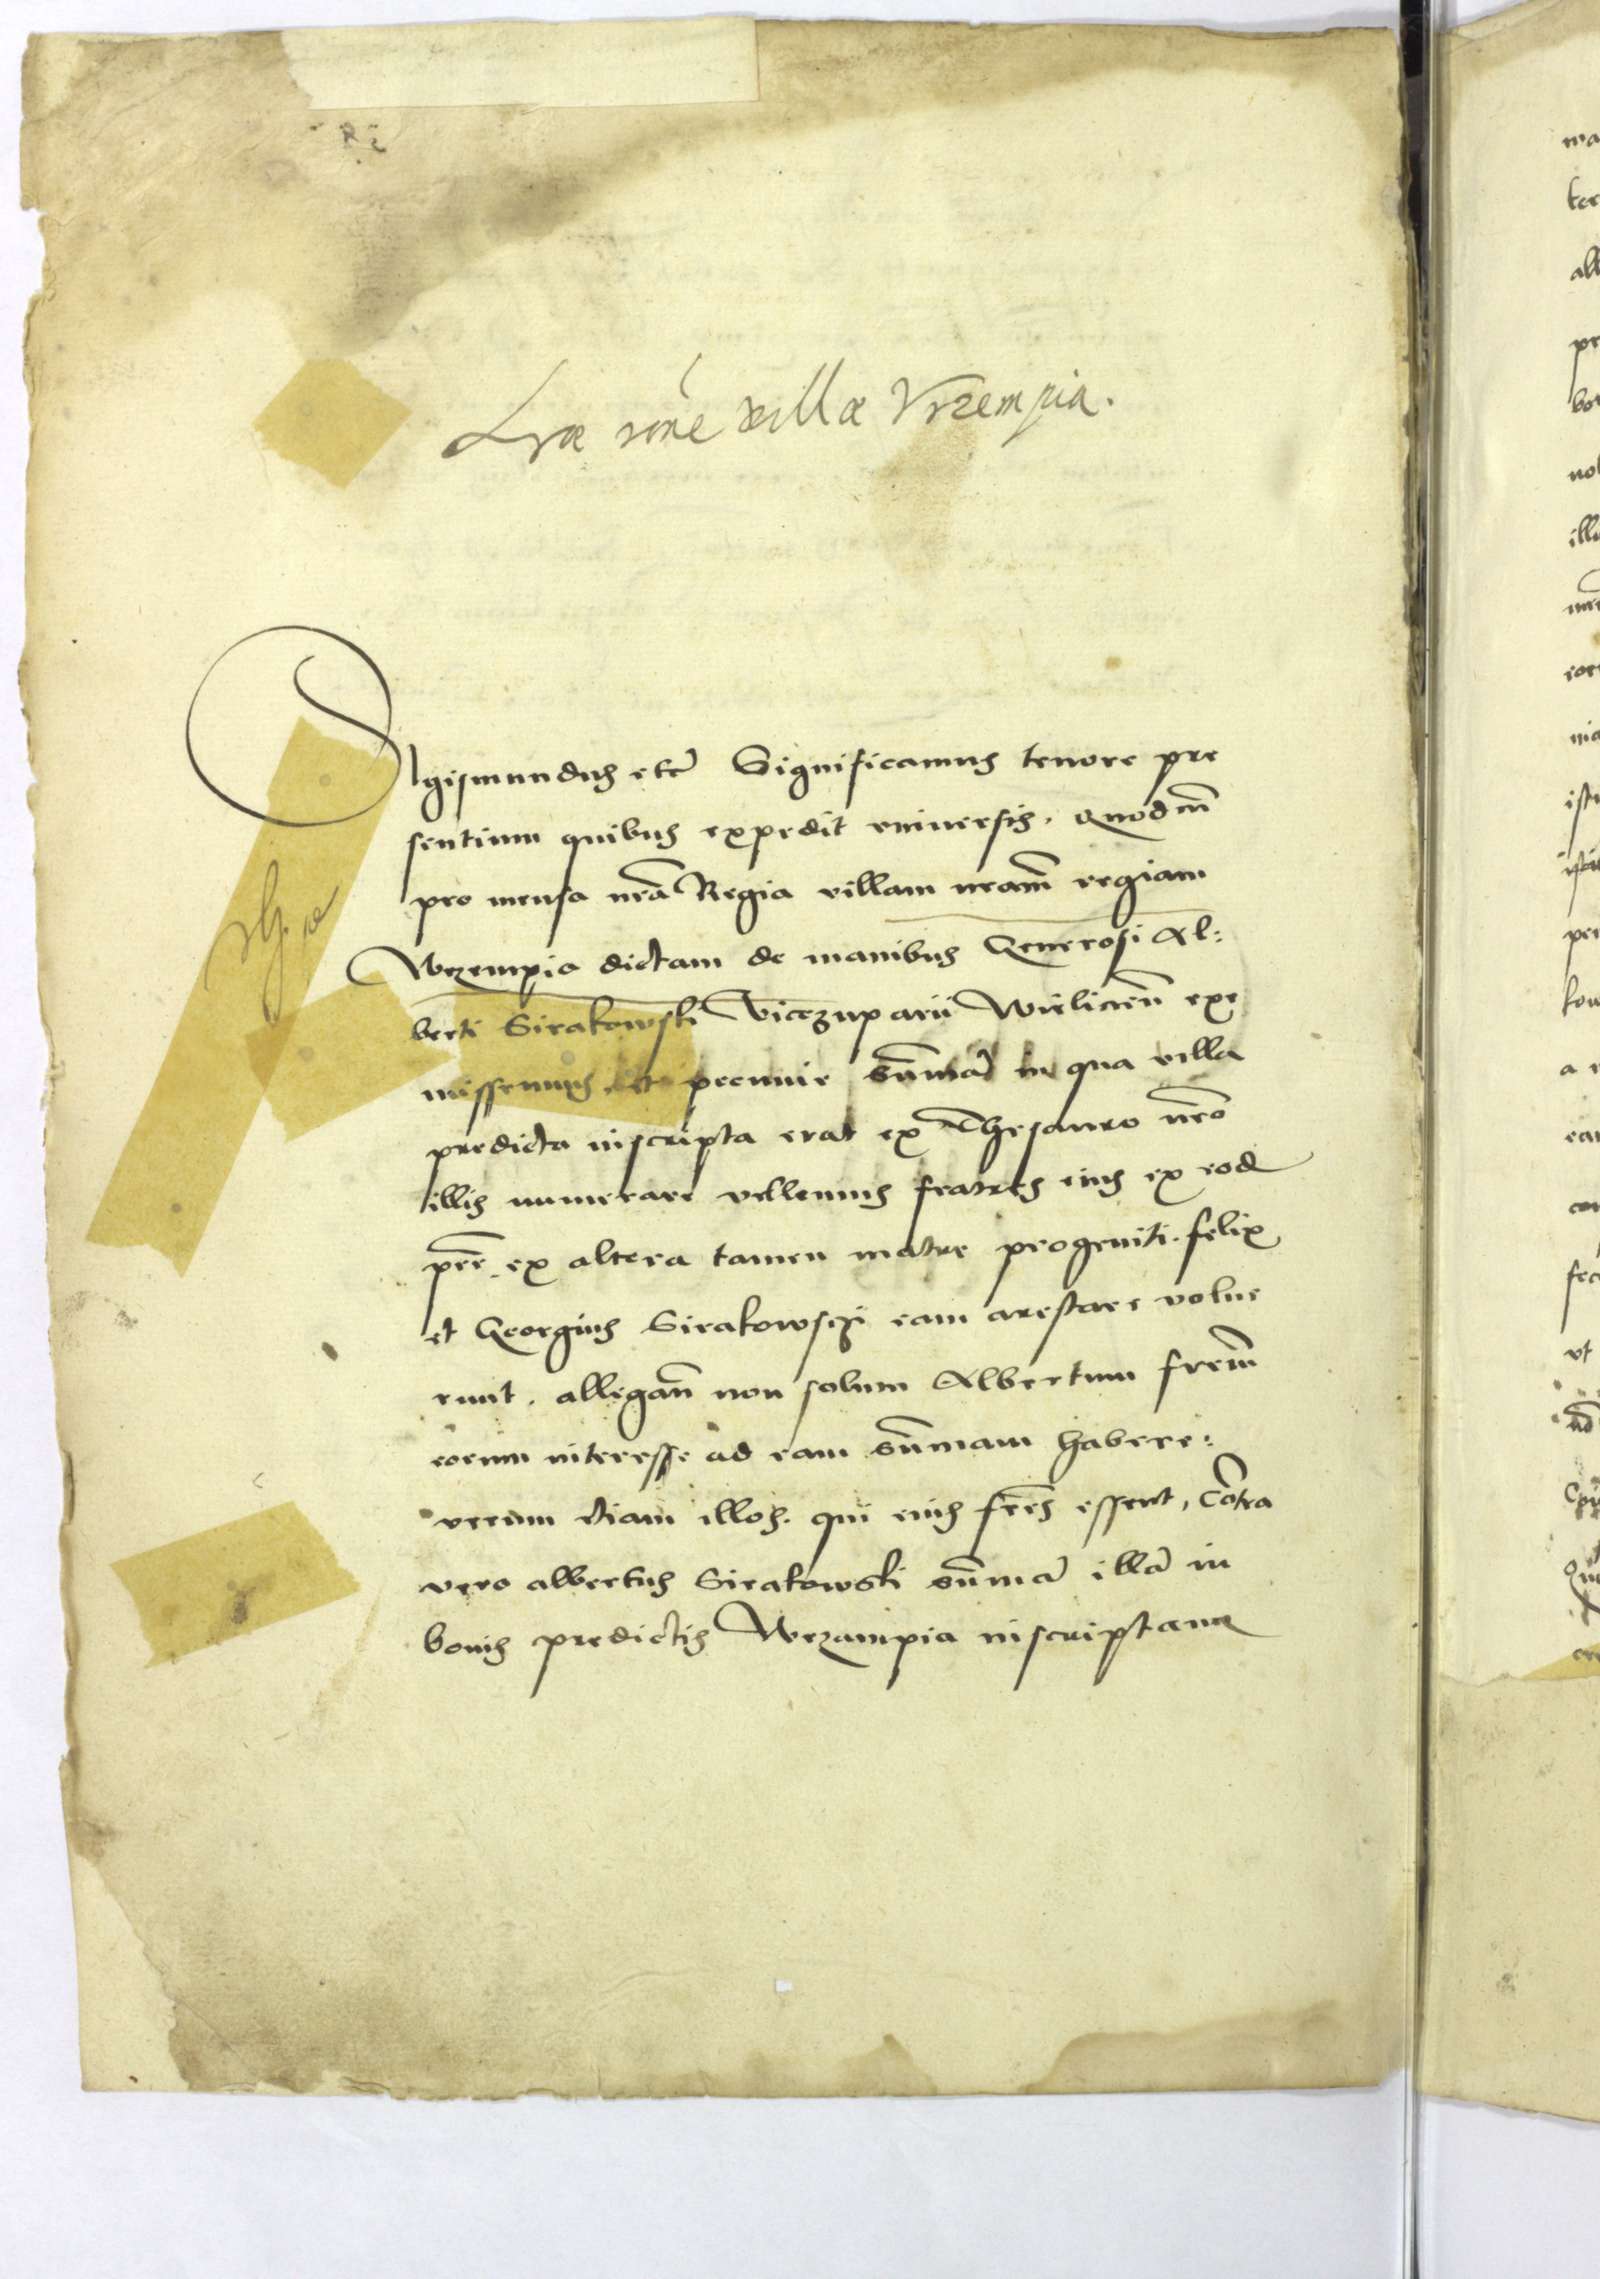 Lrae rone villae Vrzempia.
Sigismundus etc Significamus tenore pre
sentium quibus expedit vniversis. Quod cu͂
pro mensa nr͂a Regia villam nr͂am regiam
Wrzempia dictam de manibus Generosi Al:
berti Sirakowski Vicezuparii Wieliczen͂ exe
missemus et pecunie su͂ma͂ in qua villa
predicta inscripta erat ex Thesauro nr͂o
illis numerare vellemus fratres eius ex eod
pr͂e ex altera tamen matre progeniti. felix
et Georgius Sirakowsczi eam arestare volue
runt. allegan͂ non solum Albertum frem͂
eorum interesse ad eam su͂mam habere:
verum etiam illos. qui eius fr͂es essent, Co͂tra
vero albertus Sirakowski su͂ma͂ illa͂ in
bonis predictis Wrzampia inscriptam